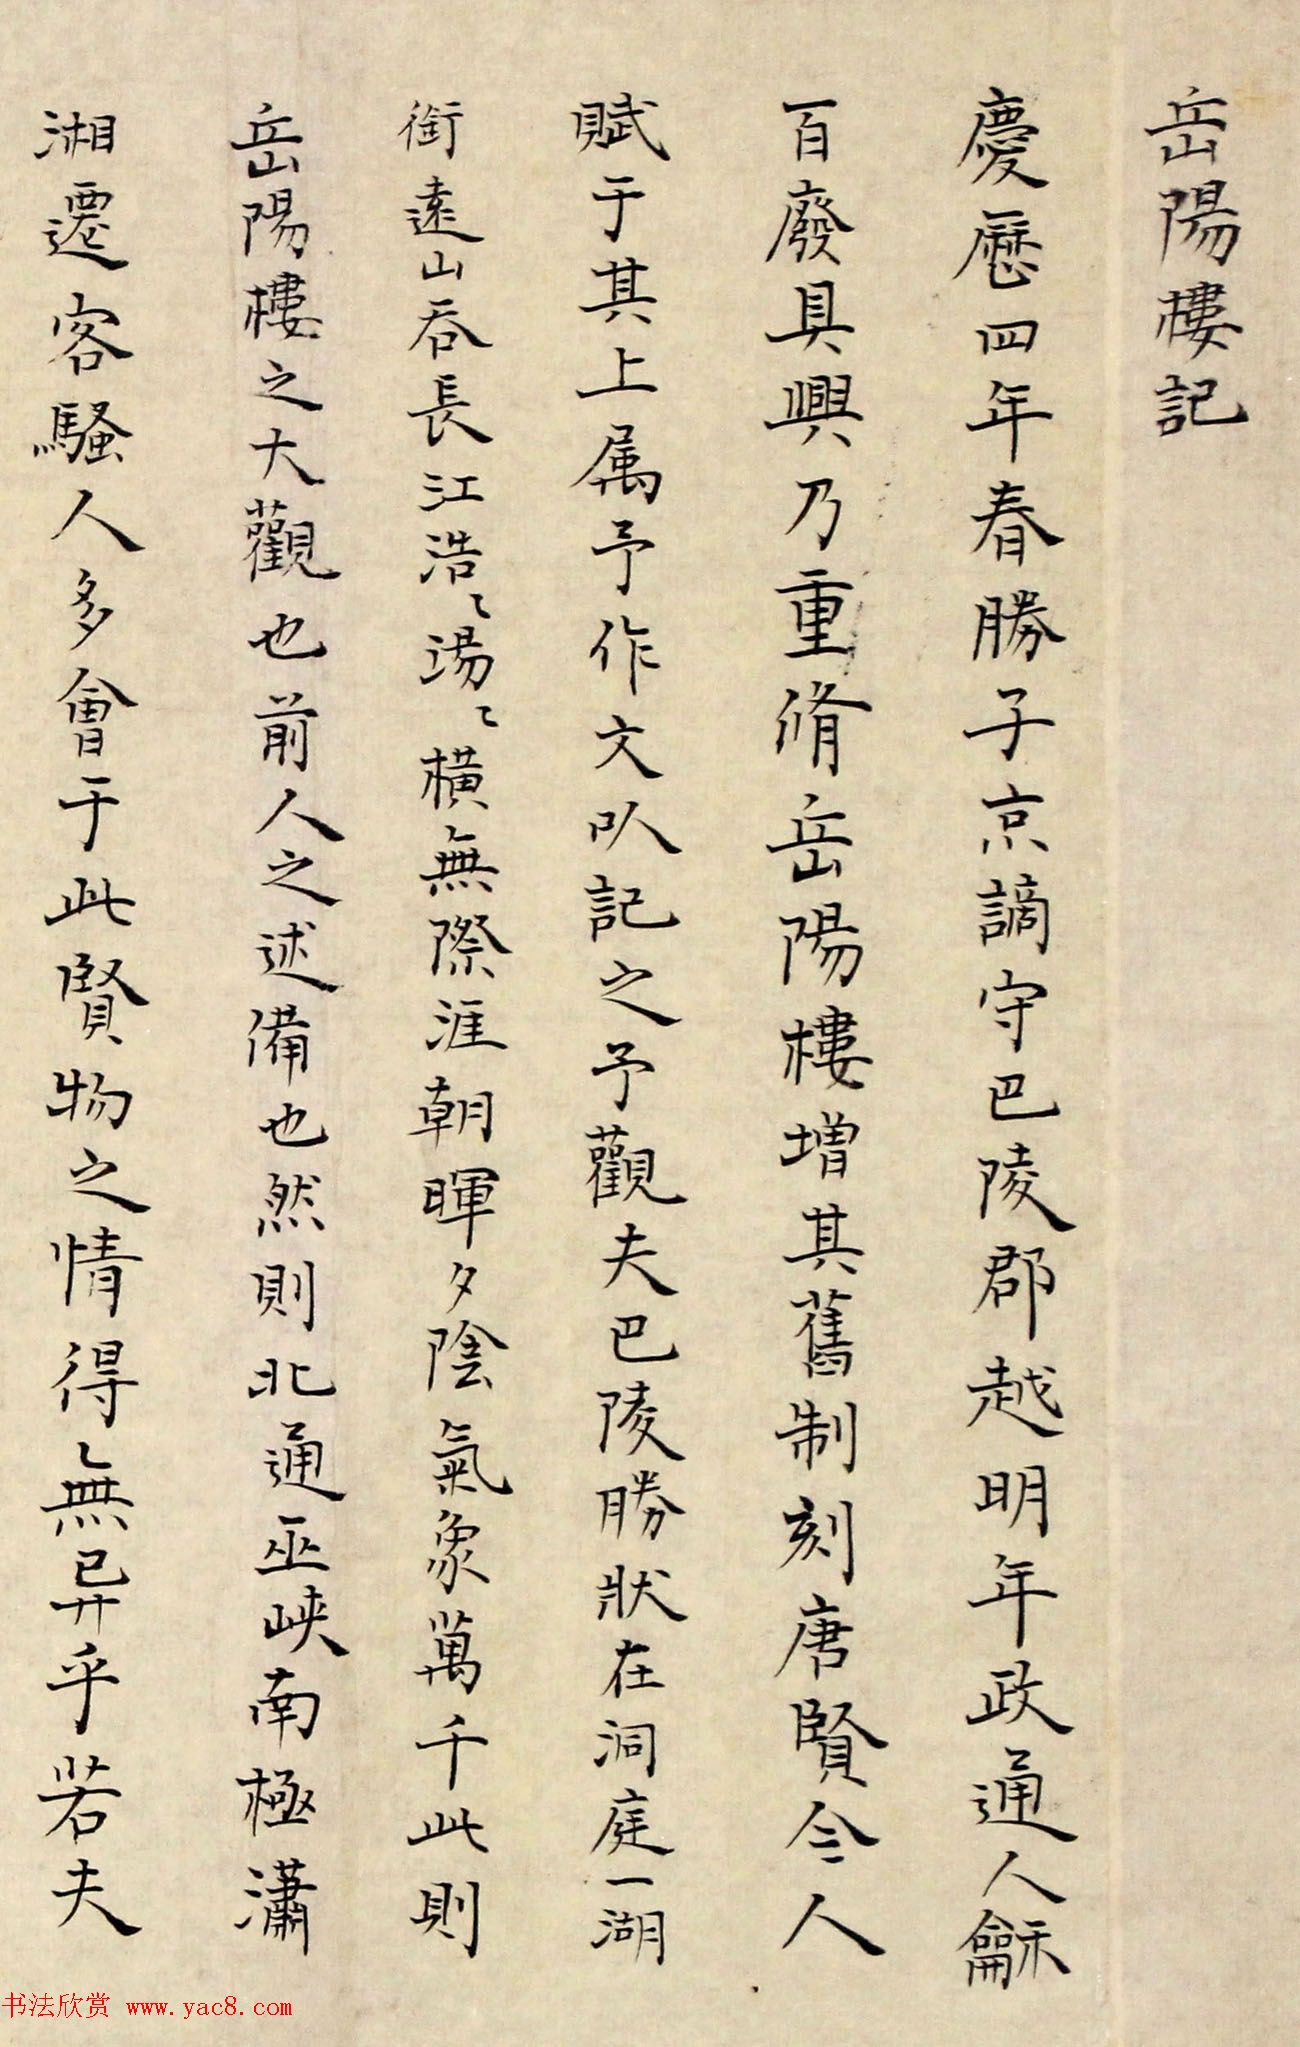 岳陽樓記
慶歷四年春勝子京謫守巴陵郡越明年政通人龢
百廢具興乃重脩岳陽樓增其舊制刻唐賢今人
賦于其上属予作文㕥記之予觀夫巴陵勝狀在洞庭一湖
銜遠山吞長江浩〻湯〻橫無際涯朝暉夕陰氣象萬千此則
岳陽樓之大觀也前人之述備也然則北通巫峽南極瀟
湘遷客騷人多會于此賢物之情得無异乎若夫
书法欣赏 www.yac8.com